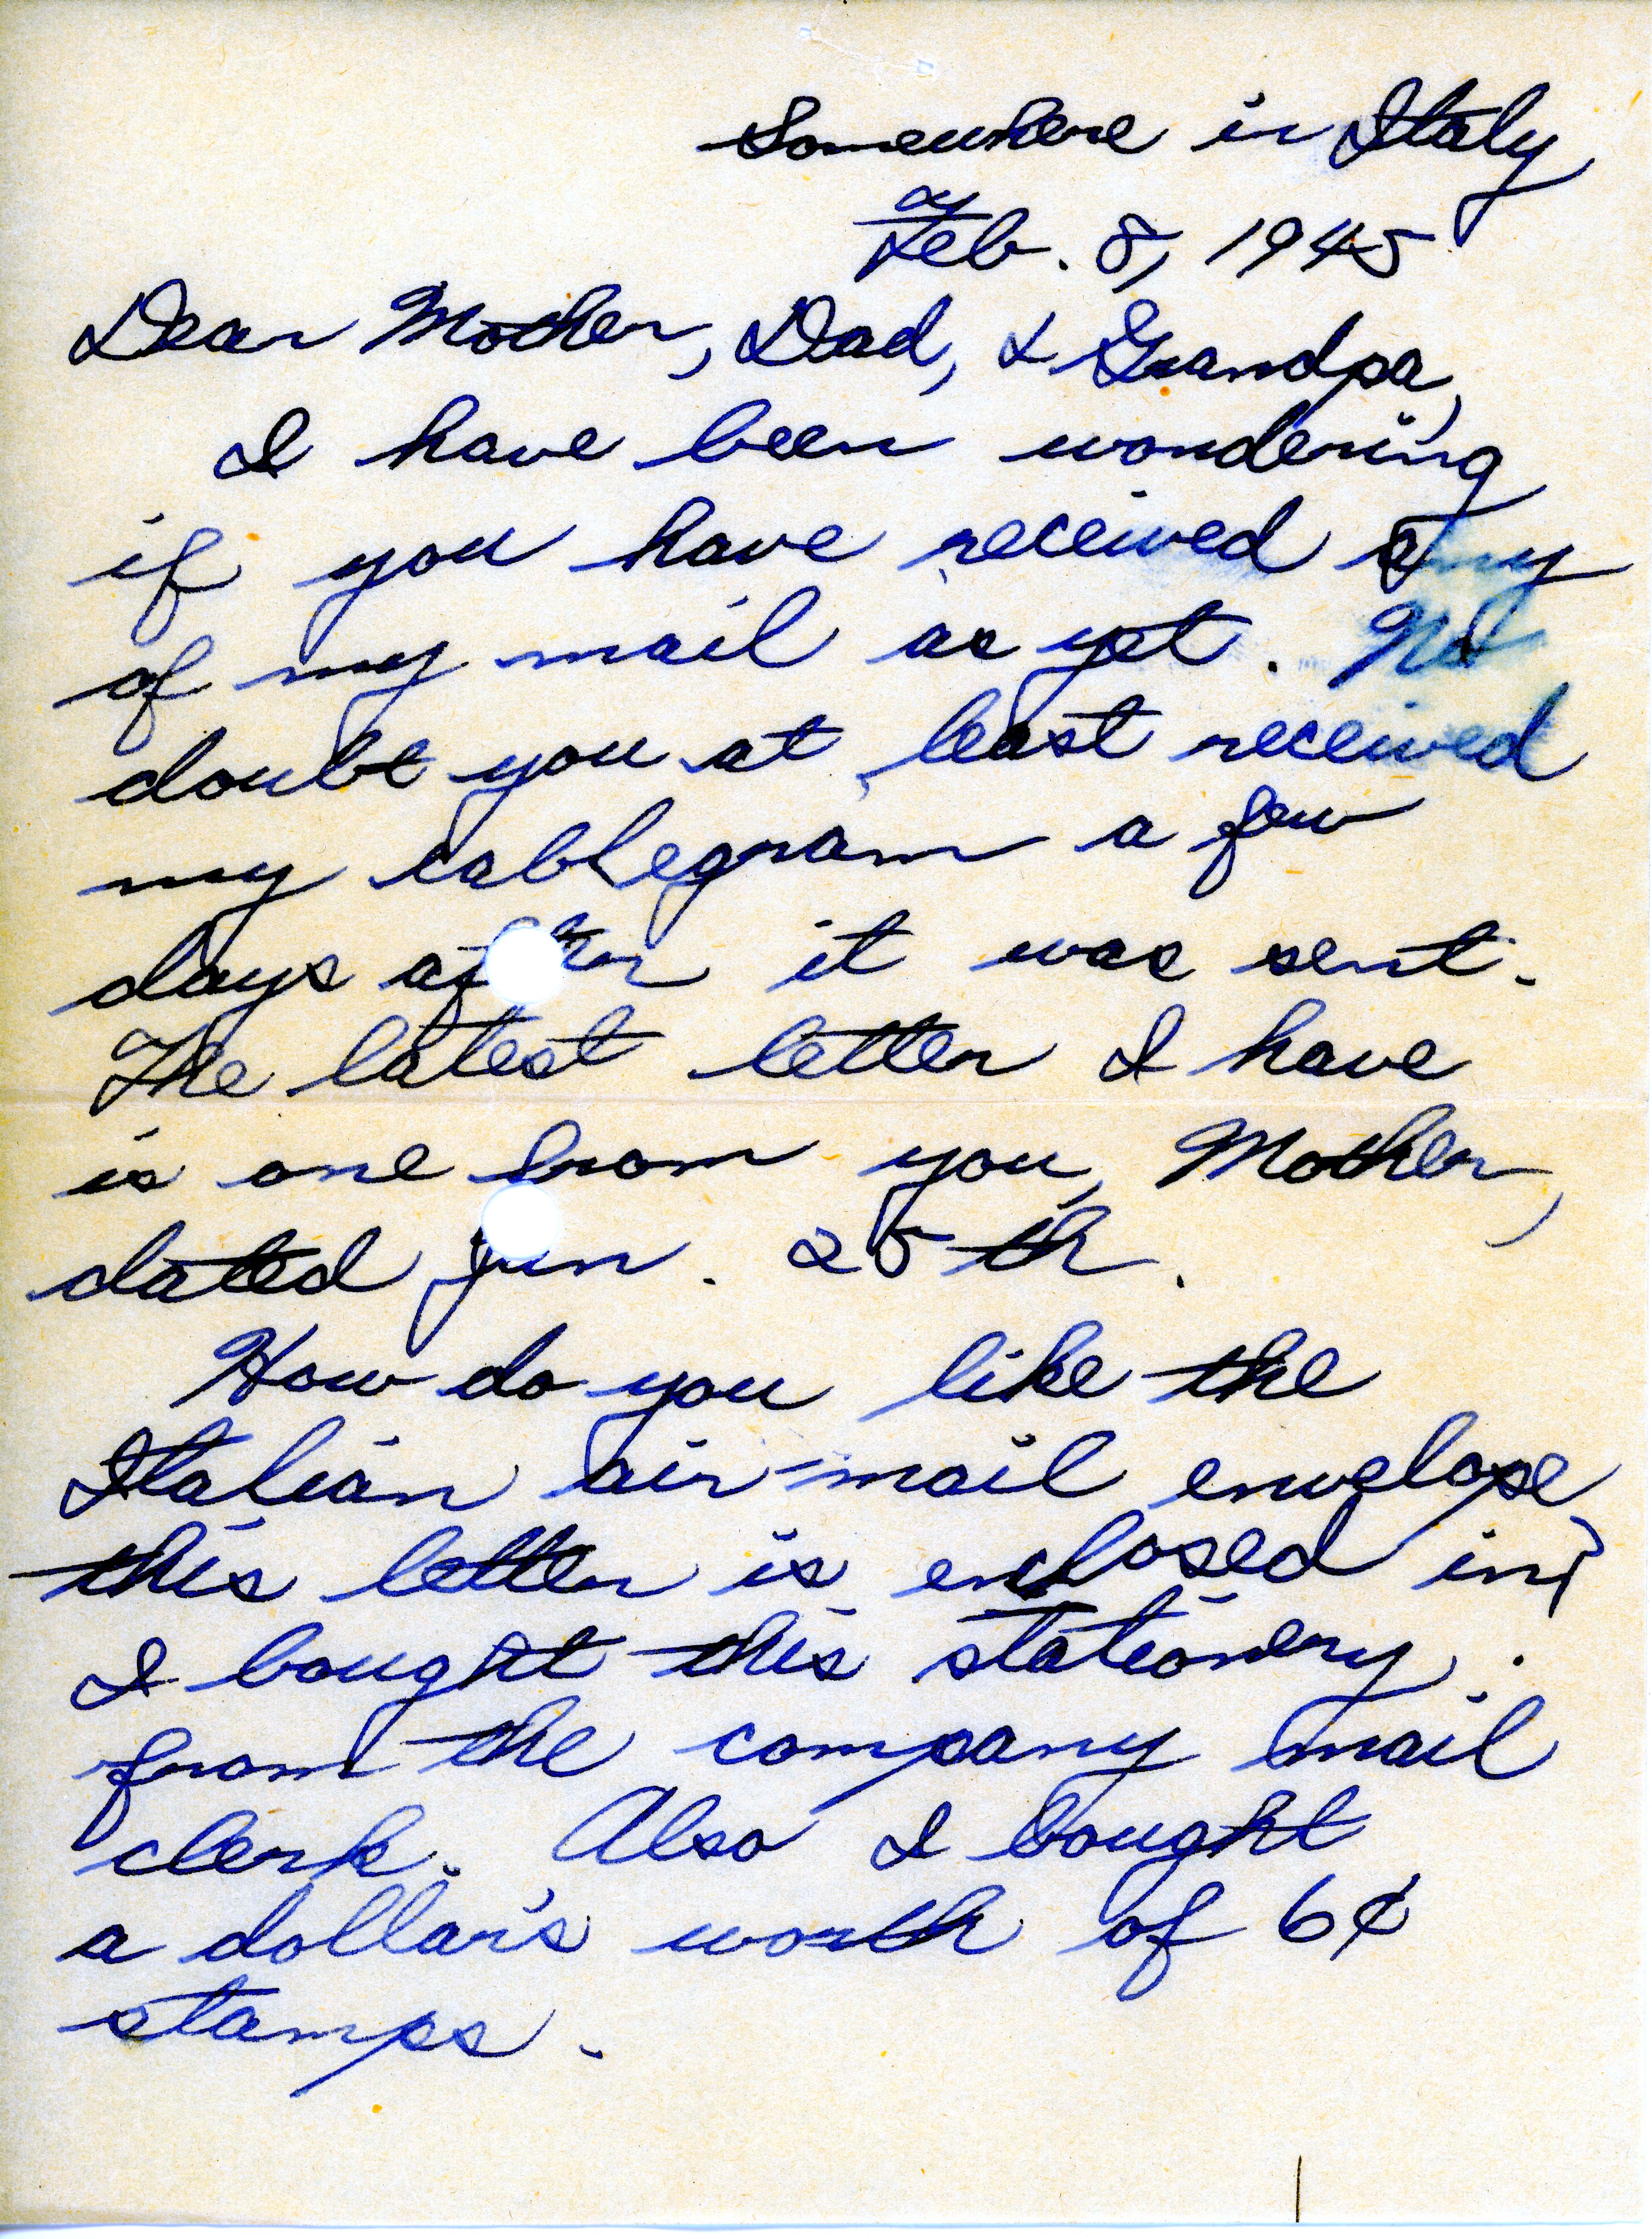 Somewhere in Italy
Feb. 8, 1945
Dear Mother, Dad, & Grandpa,
I have been wondering
if you have received any
of my mail as yet. No
doubt you at least received
my cablegram a few
days after it was sent.
The latest letter I have
is one from you, Mother,
dated Jan. 25th.
How do you like the
Italian air-mail envelope
this letter is enclosed in?
I bought this stationery
from the company mail
clerk. Also I bought
a dollar's worth of 6¢
stamps.